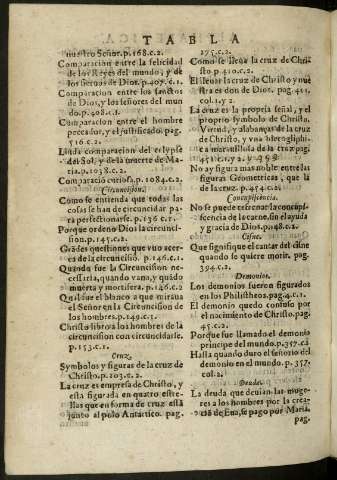 TABLA
nuestro Señor.p.168.c.2.
Comparacion entre la felicidad
de los Reyes del mundo, y de
los sieruos de Dios.p.407.c.1.
Comparacion entre los sanctos
de Dios,y los señores del mun
do.p.408.c.1.
Comparacion entre el hombre
peccador,y el justificado. pag.
516.c.2.
Linda comparacion del eclypse
del Sol, y de la muerte de Ma-
ria.p.1038.c.2.
Comparació curiosa.p.1084.c.2.
Circuncision.
Como se entienda que todas las
cosas se han de circuncidar pa
ra perfectionarse.p.136 c.1.
Porque ordeno Dios la circunci-
sion.p.145.c.2.
Grādes questiones que vuo acer-
ca de la circuncisió. p.146.c.1.
Quando fue la Circuncision ne-
cessaria,quando vana,y quādo
muerta y mortifera. p.146.c.2.
Qual fue el blanco a que miraua
el Señor en la Circuncision de
los hombres.p.149.c.1.
Christo libro a los hombres de la
circuncision con circuncidarse.
p.153.c.1.
Cruz.
Symbolos y figuras de la cruz de
Christo.p.203.c.2.
La cruz es empresa de Christo, y
está figurada en quatro estre-
llas que en forma de cruz está
junto al polo Antartico. pag.
275.c.2.
Como se lleuar la cruz de Chri-
sto p.410.c.2.
El lleuar la cruz de Christo y nue
stra es don de Dios. pag.411,
col.1.y 2.
La cruz es la propria señal, y el
proprio symbolo de Christo.
Virtud, y alabanças de la cruz
de Christo, y vna hierogliphi-
ca marauillosa de la cruz.pag.
451.c.1.y 2. y 458
No ay figura mas noble entre las
figuras Geometricas, que la
de la cruz. p.454.c.2.
Concupiscencia.
No se puede refrenar la concupis-
ficencia de la carne,sin el ayuda
y gracia de Dios.p.148.c.2.
Cisne.
Que signifique el cantar del cisne
quando se quiere morir. pag.
394.c.2.
Demonio.
Los demonios fueron figurados
en los Philistheos.pag.4.c.1.
El demonio quedo confuso por
el nacimiento de Christo.pag.
45.c.2.
Porque fue llamado el demonio
principe del mundo.p.357.c.1
Hasta quando duro el señorio del
demonio en el mundo. p. 357.
col.2.
Deuda.
La deuda que deuian las muge-
res a los hombres por la crea-
ció de Eua, se pago por Maria.
pag.